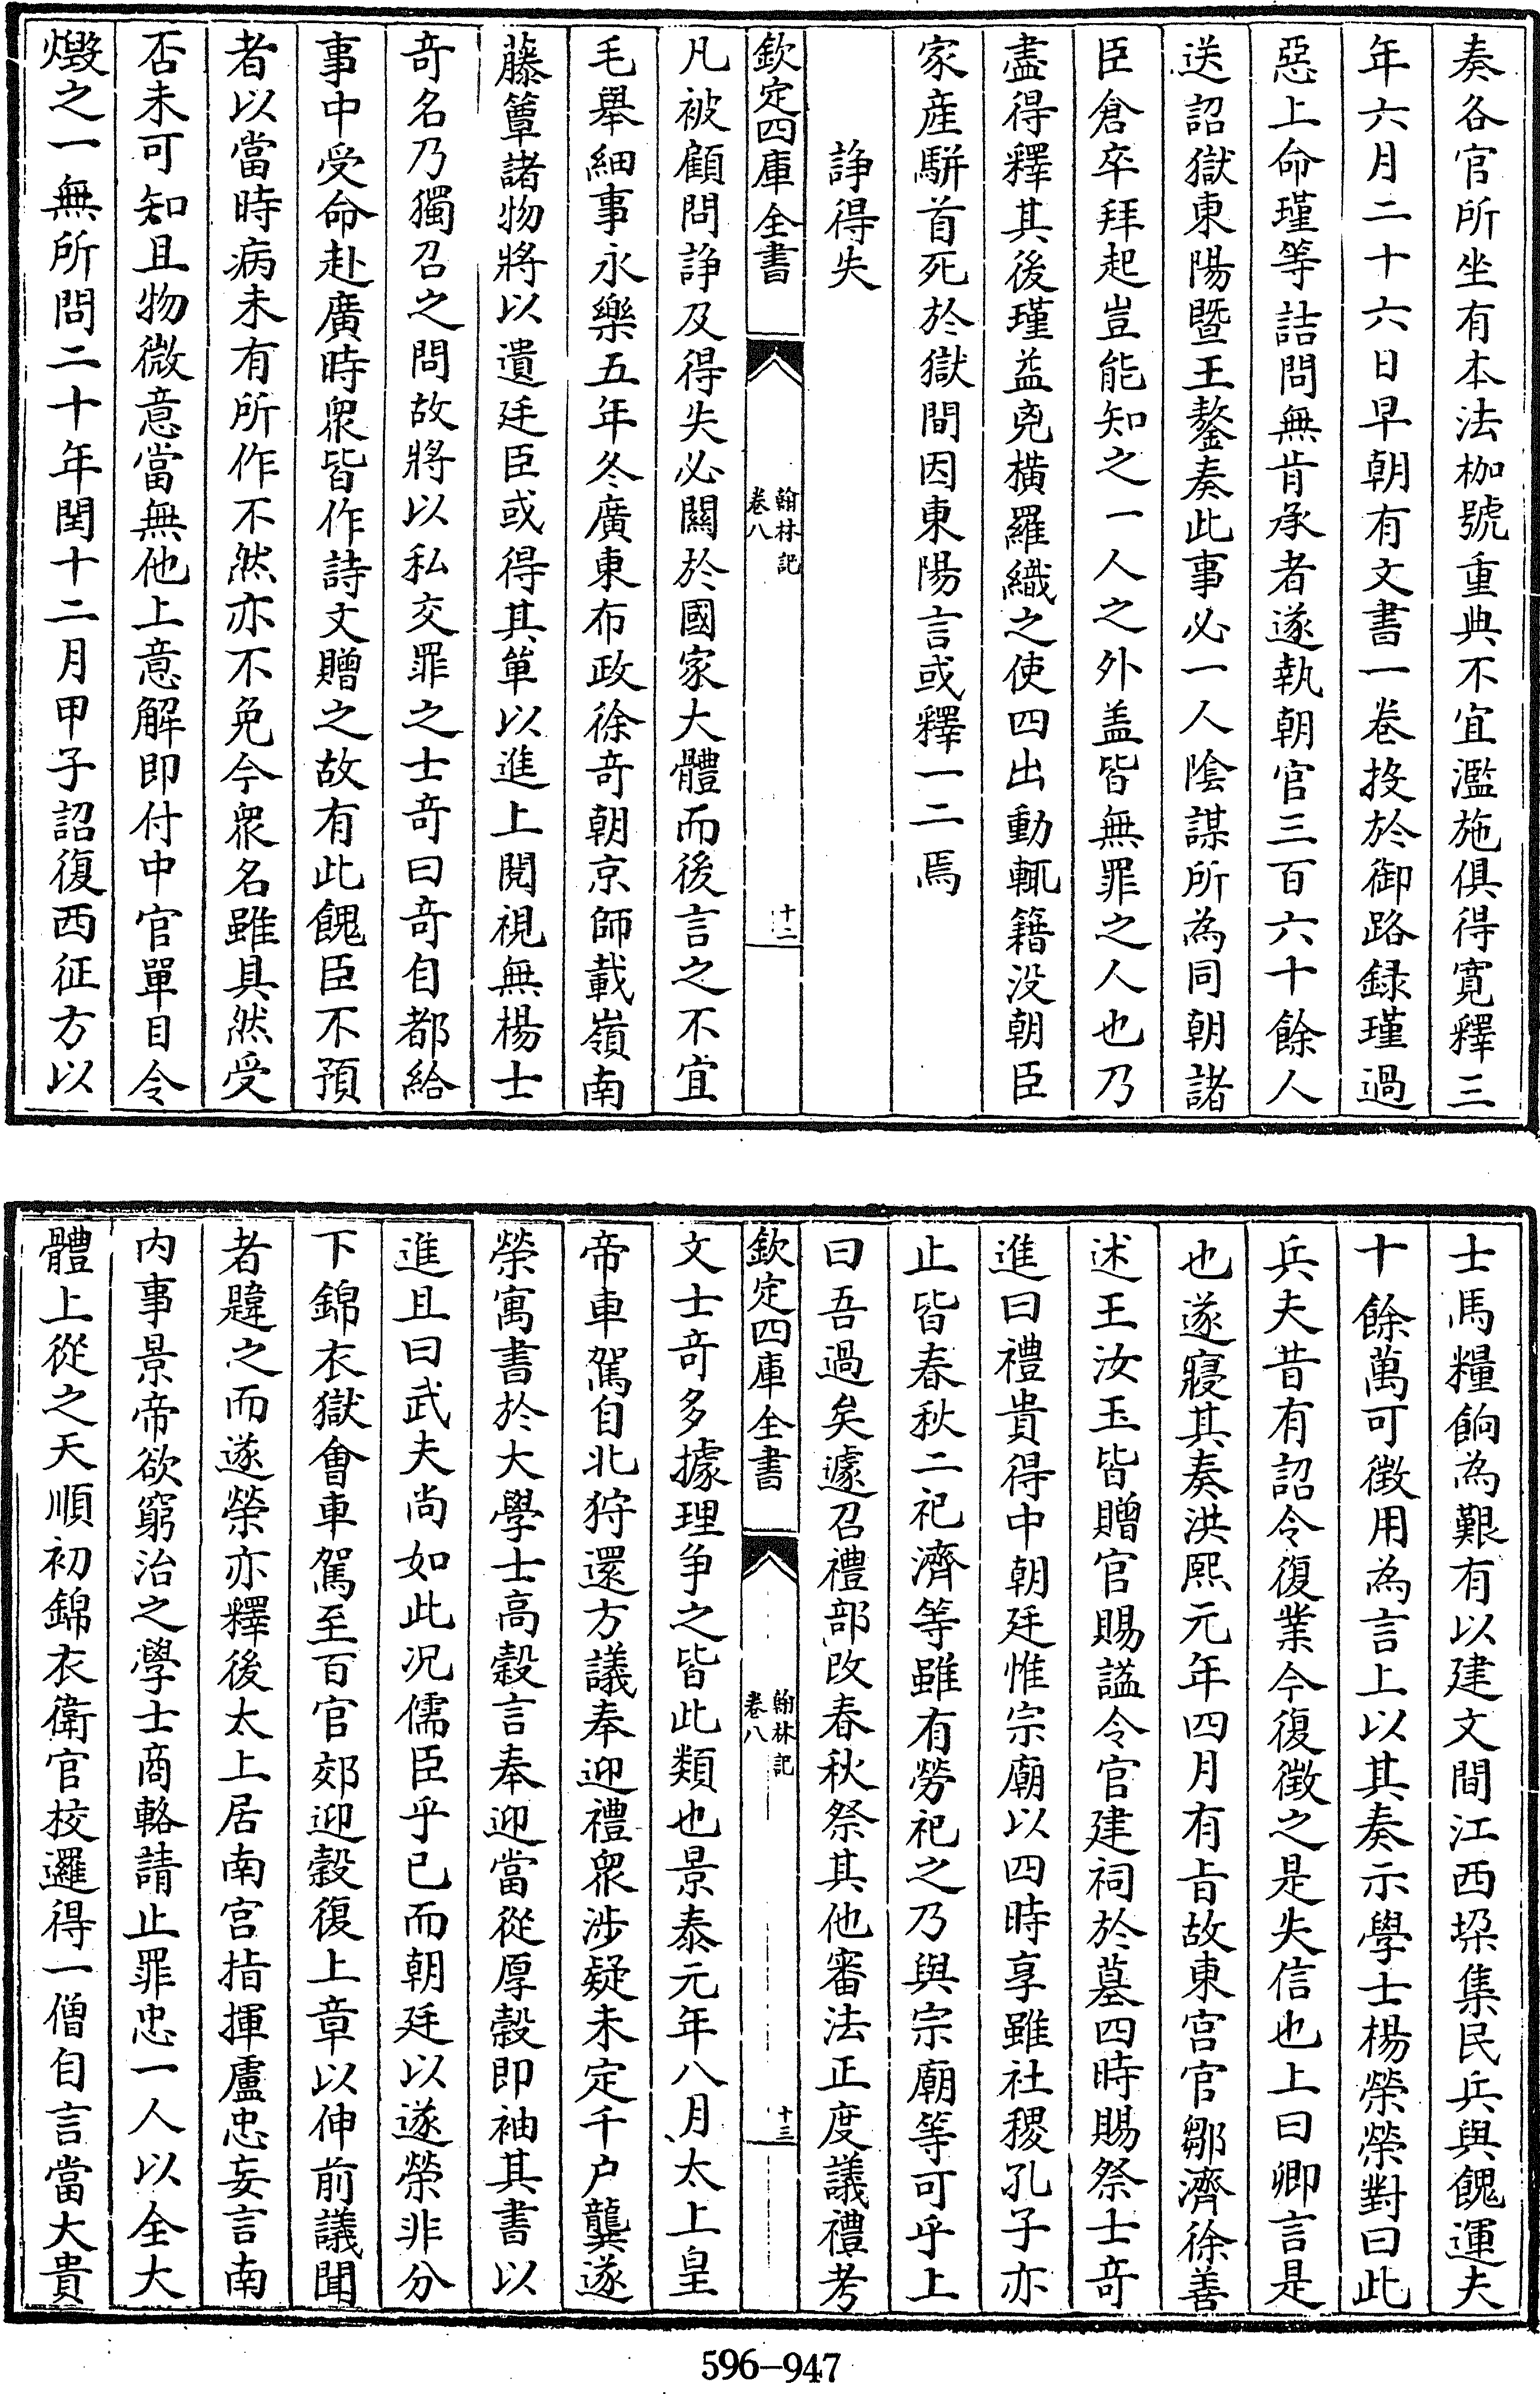 奏各官所坐有本法枷號重典不宜濫施俱得寛釋三
年六月二十六日早朝有文書一卷投於御路録瑾過
惡上命瑾等詰問無肯承者遂執朝官三百六十餘人
送詔獄東陽暨王鏊奏此事必一人陰謀所為同朝諸
臣倉卒拜起豈能知之一人之外盖皆無罪之人也乃
盡得釋其後瑾益兇横羅織之使四出動輒籍没朝臣
家産駢首死於獄間因東陽言或釋一二焉
諍得失
欽定四庫全書
翰林記
卷八
十二
凡被顧問諍及得失必關於國家大體而後言之不宜
毛舉細事永樂五年冬廣東布政徐奇朝京師載嶺南
藤簟諸物將以遺廷臣或得其单以進上閲視無楊士
奇名乃獨召之問故將以私交罪之士奇曰奇自都給
事中受命赴廣時衆皆作詩文贈之故有此餽臣不預
者以當時病未有所作不然亦不免今衆名雖具然受
否未可知且物微意當無他上意解即付中官單目令
燬之一無所問二十年閏十二月甲子詔復西征方以
士馬糧餉為艱有以建文間江西垜集民兵與餽運夫
十餘萬可徴用為言上以其奏示學士楊榮榮對曰此
兵夫昔有詔令復業今復徴之是失信也上曰卿言是
也遂寢其奏洪熙元年四月有旨故東宫官鄒濟徐善
述王汝玉皆贈官賜謚令官建祠於墓四時賜祭士奇
進曰禮貴得中朝廷惟宗廟以四時享雖社稷孔子亦
止皆春秋二祀濟等雖有勞祀之乃與宗廟等可乎上
曰吾過矣遽召禮部改春秋祭其他審法正度議禮考
欽定四庫全書
翰林記
卷八
十三
文士奇多據理爭之皆此類也景泰元年八月太上皇
帝車駕自北狩還方議奉迎禮衆涉疑未定千户龔遂
榮寓書於大學士高榖言奉迎當從厚榖即袖其書以
進且曰武夫尚如此况儒臣乎已而朝廷以遂榮非分
下錦衣獄會車駕至百官郊迎榖復上章以伸前議聞
者韙之而遂榮亦釋後太上居南宫指揮盧忠妄言南
内事景帝欲窮治之學士商輅請止罪忠一人以全大
體上從之天順初錦衣衛官校邏得一僧自言當大貴
596-947